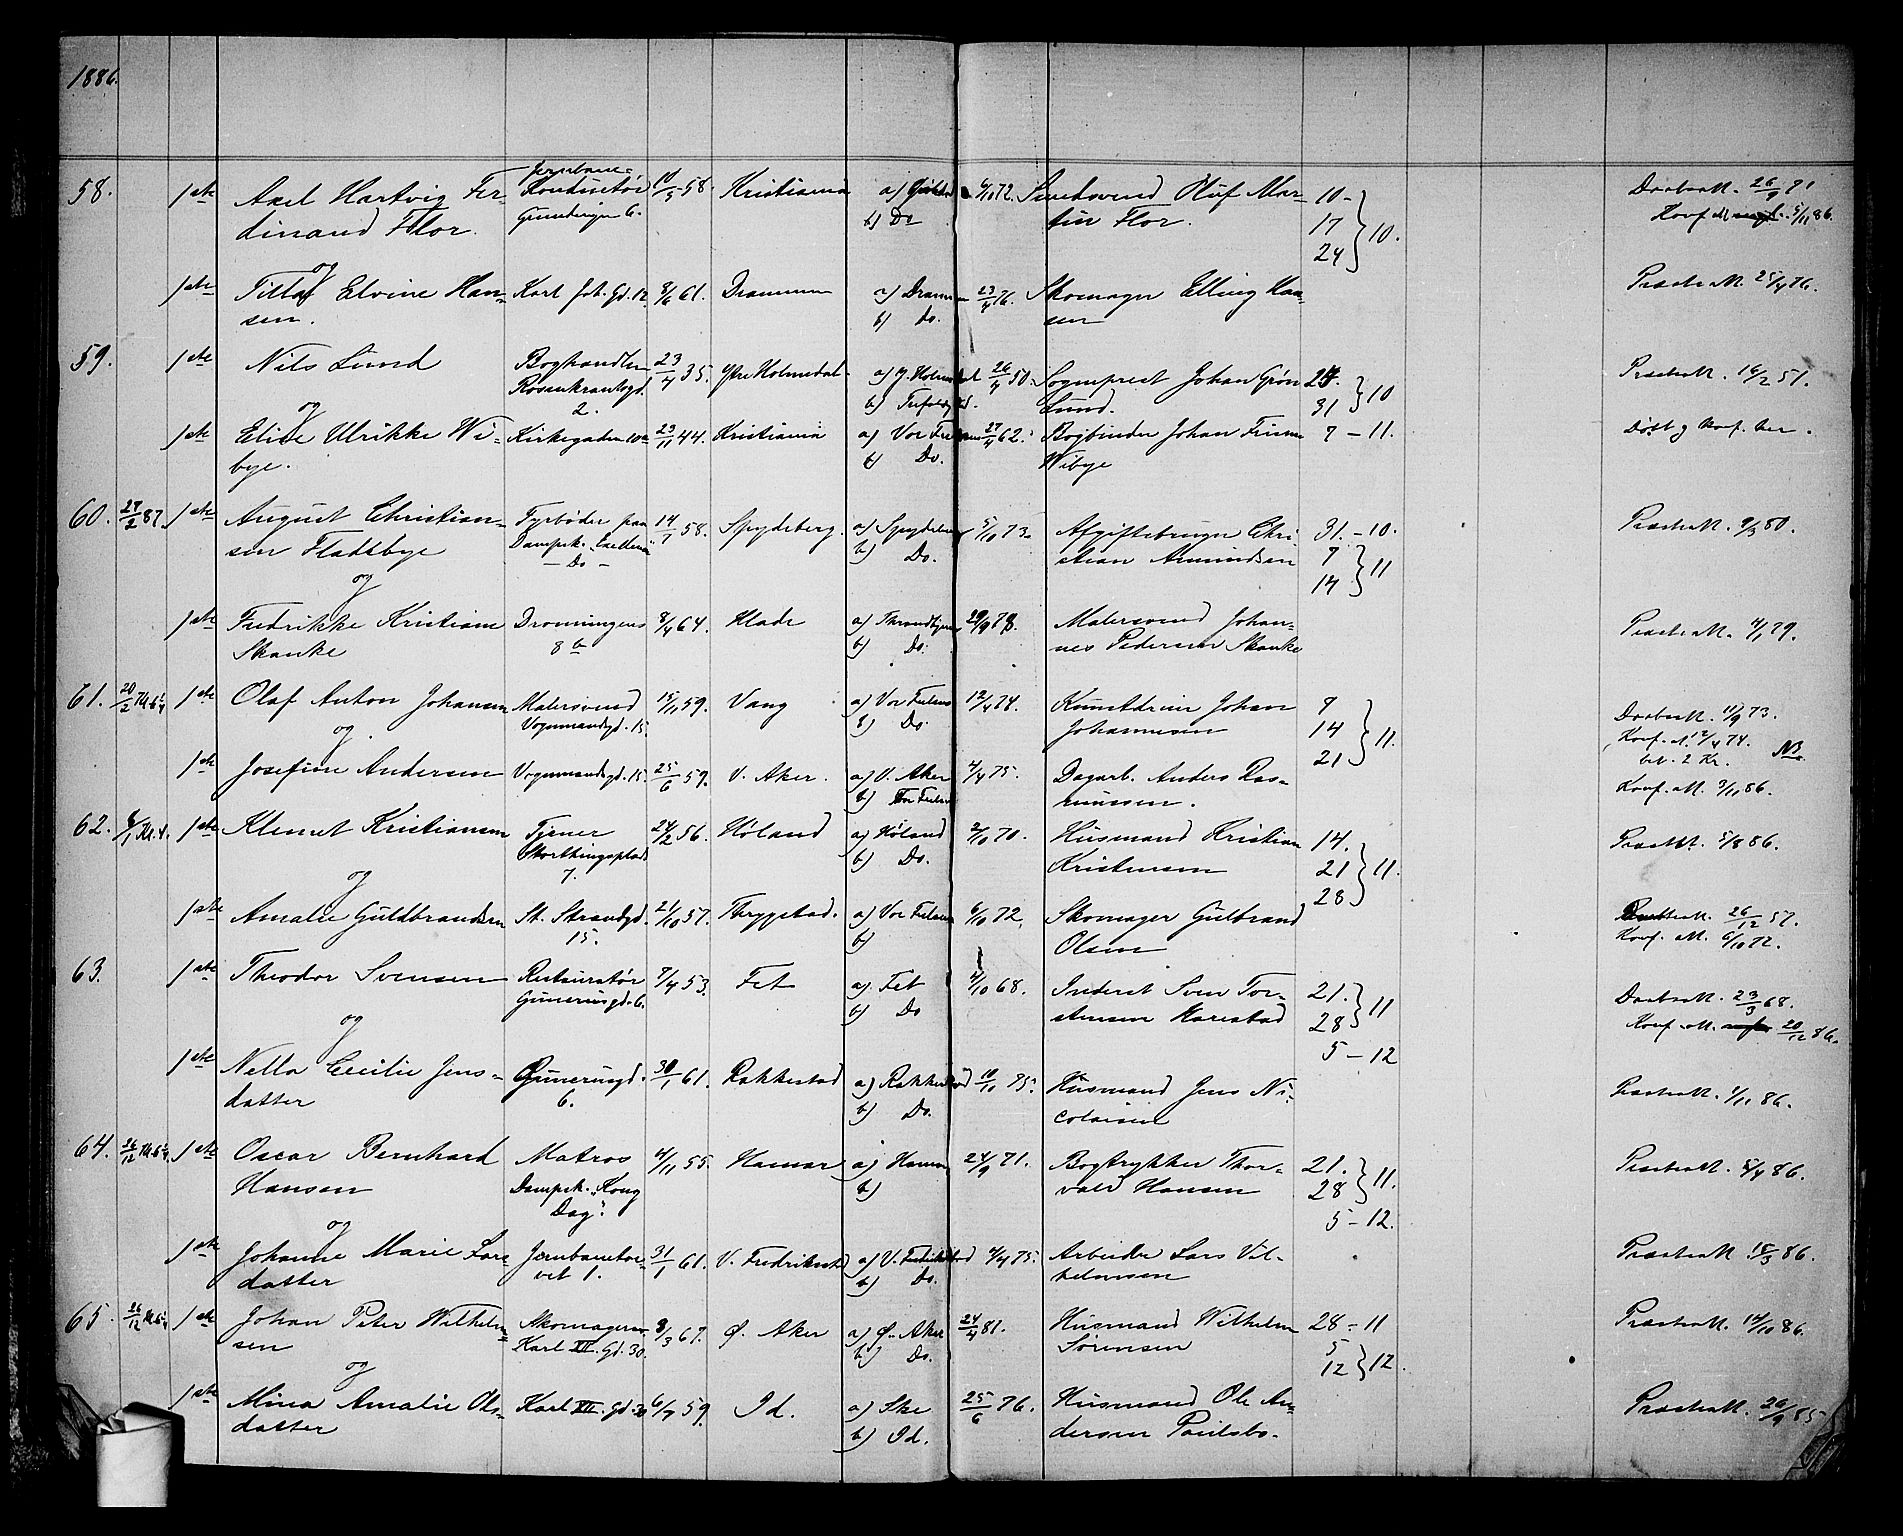 1886.
58. 1ste Axel Hartvig Fer- Jernbane- Konduktør 10/5 58. Kristiania a) 6/10 72. Oluf Mar- 10.- Daabsatt. 26/9 71
dinand Flor. 6. b) Do tin Flor. 17 } 10. Konf. 5/11 86.
24
og
1ste Elvine Han- Karl Joh. Gd. 12. 8/6 61. Drammen a) Drammen 23/4 76. Skomager Elling Han- Præsteatt. 25/4 76.
sen. b) Do. sen
59. 1ste Nils Lund Boghandler 23/4 35. Ytre Holmedal a) Y. Holmedal 26/4 50. Sogneprest Johan Grøn 24. } 10 Præsteatt. 16/2 51.
Rosenkrantzgd. 2. b) Lund. 31
og
1ste Elise Ulrikke Wi- Kirkegaden 10a 23/11 44. Kristiania a) Vor Frelsers 27/4 62. Bogbinder Johan 7 - 11. Døbt og konf. her.
bye. b) Do. Wibye
60. 27/2 87. 1ste August Christian- Fyrbøder paa 14/7 58. Spydeberg. a) Spydeberg 5/10 73. Afgiftsbruger Chri- 31. - 10. Præsteatt. 9/3 80.
sen Fladebye Dampsk. b) Do. stian Amundsen 7 } 11
- Do - 14
og
1ste Fredrikke Kristiane Dronningens 8/4 64. Lade a) Throndhjem 29/9 78. Malersvend Johan- Præsteatt. 4/1 79.
Skanke 8 b b) Do. nes Pedersen Skanke
61. 20/2 1ste Olaf Anton Johansen Malersvend 15/11 59. Vang a) Vor Frelsers 12/4 74. Kunstdreier Johan 7 Daabsatt. 11/9 73.
Vognmandsgd. 15. b) Do. Johannesen 14 } 11. Konf. A. 12/4 74.
og. 21 bet. 2 Kr. No
1ste Josefine Andersen Vognmandsgd. 15. 25/6 59. V. Aker. a) V. Aker 4/4 75. Dagarb. Anders Ras- Konf. Att. 3/11 86.
b) Vor Frelsers mussen.
62. 6/1 Kl. 4. 1ste Klemet Kristiansen Tjener 24/2 56. Høland a) Høland 2/10 70. Husmand Kristian 14. Præsteatt. 5/8 86.
Storthingsplads 7. b) Do. Kristensen 21 } 11.
og 28
1ste Amalie Guldbrandsen St. Strandgd. 21/10 57. Thrygstad. a) Vor Frelsers 6/10 72. Skomager Gulbrand 26/12 57.
15. b) Olsen Konf. Att. 6/10 72.
63. 1ste Theodor Svensen Restauratør 7/4 53. Fet a) Fet 4/10 68. Inderst Sven Tor- 21. } 11 Daabsatt. 23/3 68.
Grønerusgd. 6. b) Do stensen Harestad 28 Konf. Att. 20/12 86.
og 5 - 12
1ste Nella Cecilie Jens- 6. 30/1 61. Rakkestad a) Rakkestad 10/11 75. Husmand Jens Ni- Præsteatt. 1/11 86.
datter b) Do. colaisen
64. 26/12 1ste Oscar Bernhard Matros 4/11 55. Hamar a) Hamar 24/9 71. Bogtrykker Thor- 21. } 11. Præsteatt. 5/4 86.
Hansen Dampsk. "Kong b) vald Hansen 28
Dag". 5 - 12.
og
1ste Johanne Marie Lars- Jernbanetor- 31/1 61. V. Fredrikstad a) V. Fredrikstad 4/4 75. Arbeider Lars Vil- Præsteatt. 18/3 86.
datter vet 1. b) Do. helmsen
65. 26/12 1ste Johan Peter Wilhelm- Skomagersv. 8/3 67. Ø. Aker a) Ø. Aker 24/4 81. Husmand Wilhelm 28 - 11 Præsteatt. 14/10 86.
sen Karl XII. Gd. 30. b) Do. Sørensen 5 } 12.
og 12
1ste Mina Amalie Ols- Karl XII. Gd. 30 6/7 59. Id. a) Ske 25/6 76. Husmand Ole An- Præsteatt. 26/9 85
datter b) Id. dersen Paulsbo.